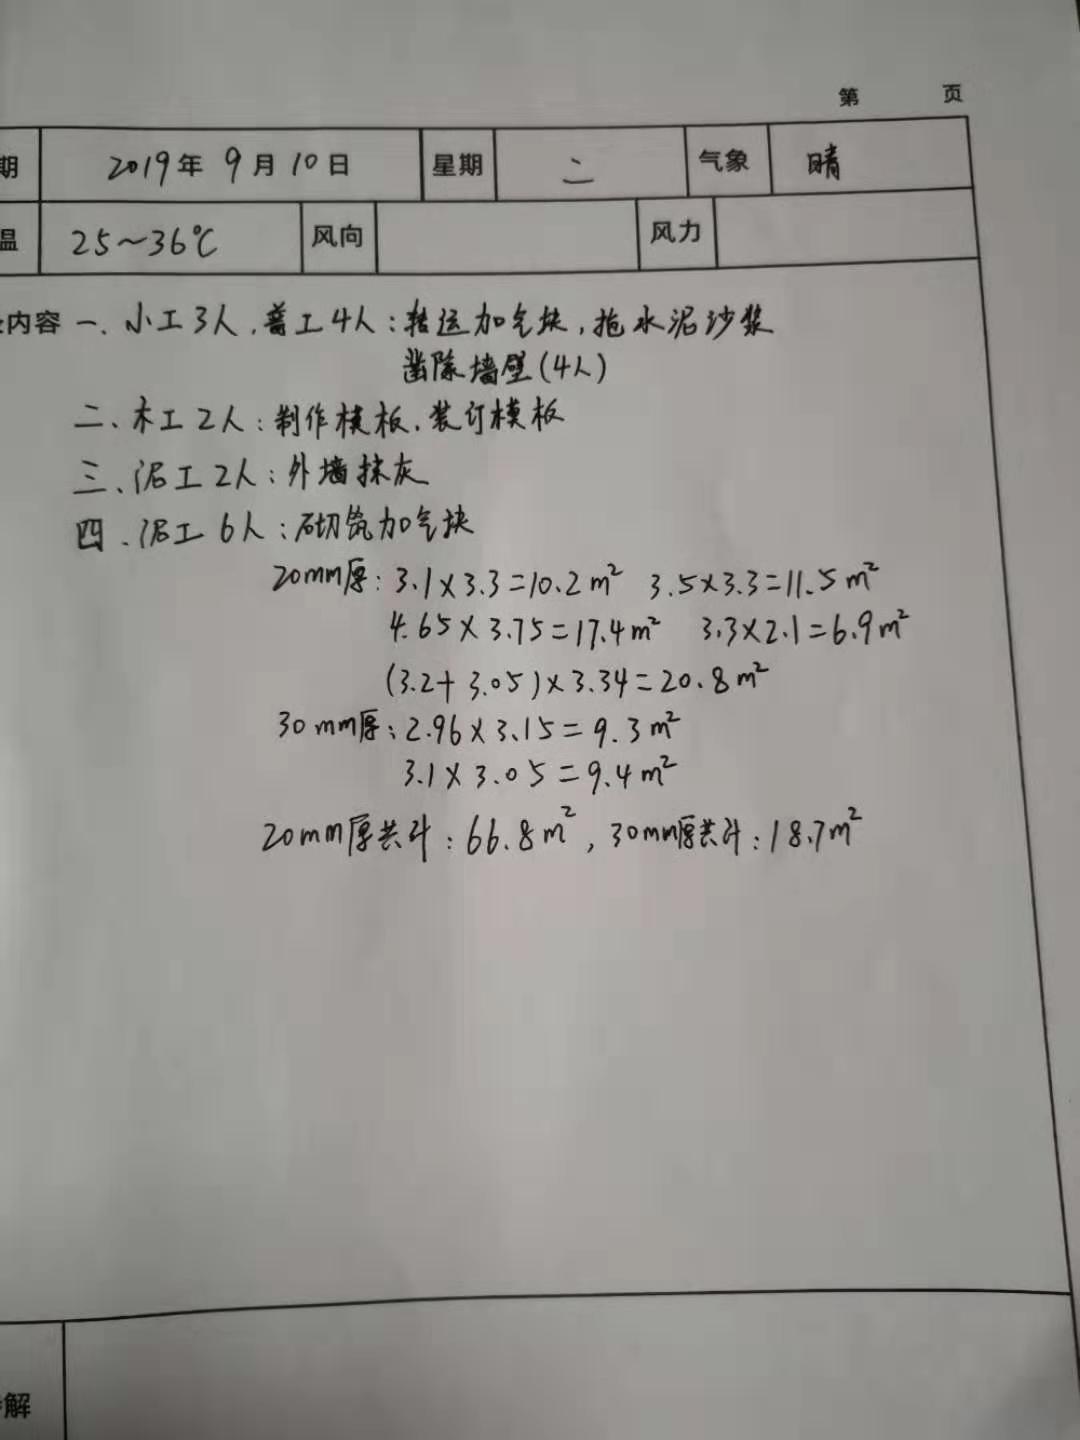 第 页
期 2019年 9月 10日 星期 二 气象 晴
温 25~36℃ 风向 风力
内容 一、小工3人，普工4人：转运加气块，拖水泥沙浆
凿除墙壁(4人)
二、木工2人：制作模板，装订模板
三、泥工2人：外墙抹灰
四、泥工6人：砌筑加气块
20mm厚：3.1×3.3=10.2m² 3.5×3.3=11.5m²
4.65×3.75=17.4m² 3.3×2.1=6.9m²
(3.2+3.05)×3.34=20.8m²
30mm厚：2.96×3.15=9.3m²
3.1×3.05=9.4m²
20mm厚共计：66.8m²，30mm厚共计：18.7m²
解